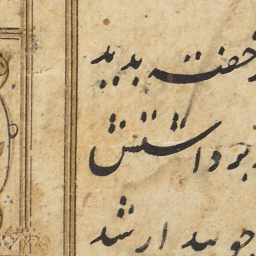 خفته بدید
برداشتش
چو بیدار شد